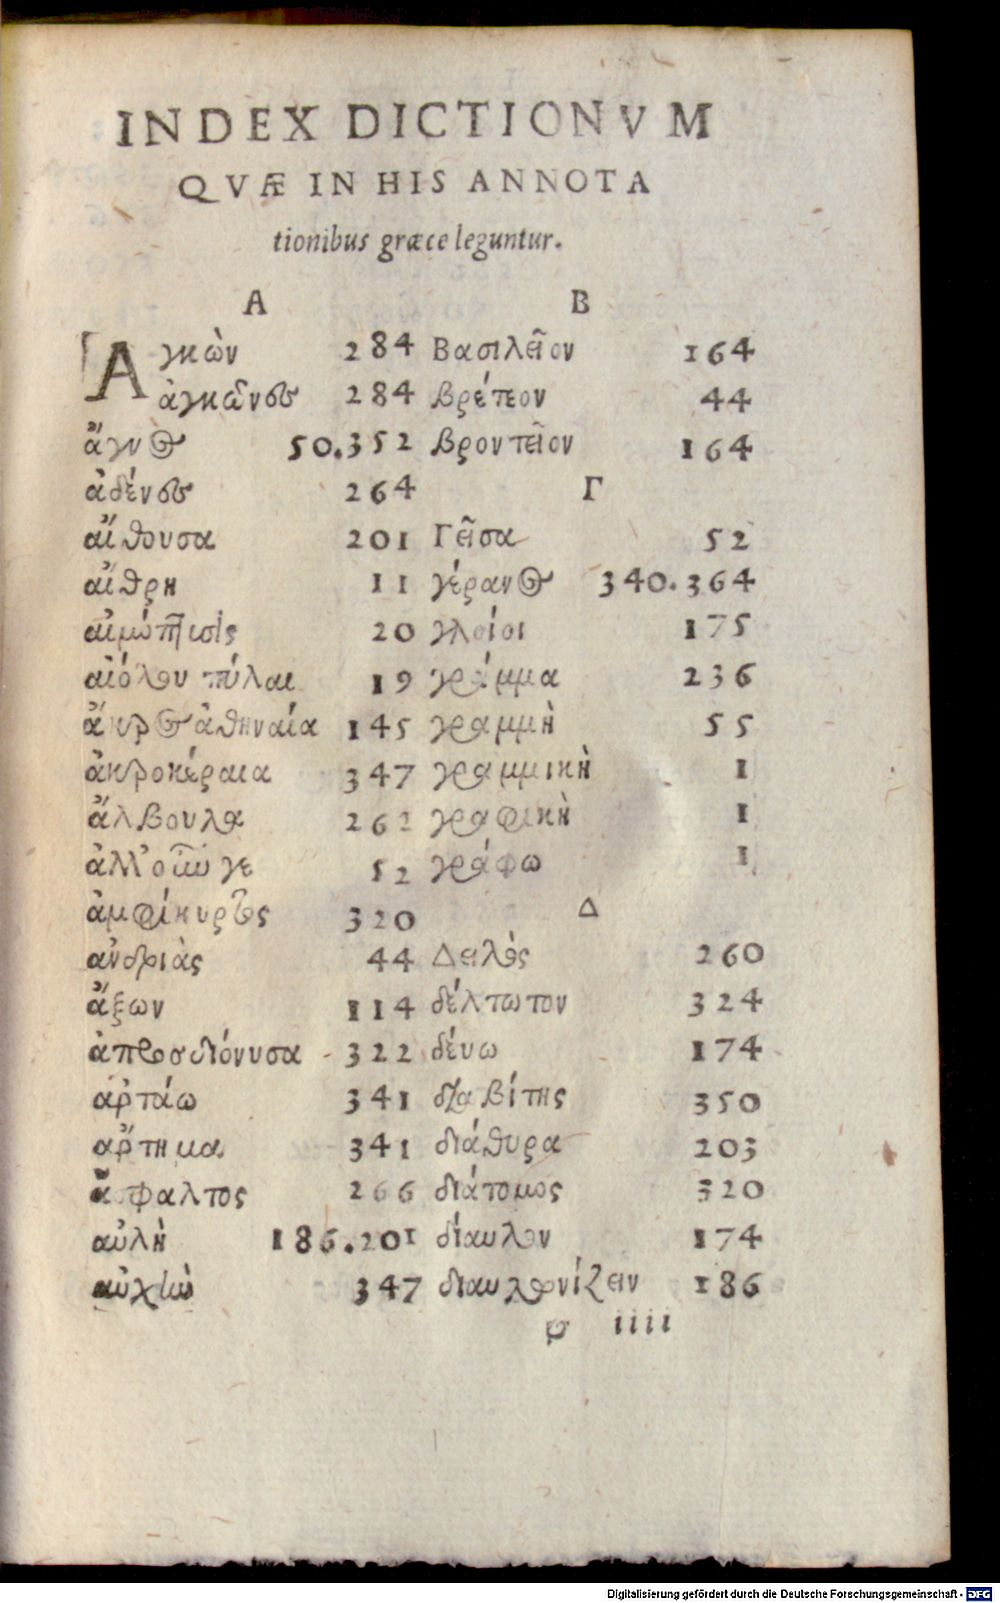 INDEX DICTIONVM
QVÆ IN HIS ANNOTA
tionibus græce leguntur.
A
Αγκὼν 284
ἀγκῶνες 284
ἄγνος 50.352
ἀδένες 264
αἴθουσα 201
αἴθρη 11
20
αἰόλου πύλαι 19
ἄκρος ἀθηναία 145
ἀκροκέραια 347
ἄλβουλα 262
52
ἀμφίκυρτος 320
ἀνδριὰς 44
ἄξων 114
ἀπροσδιόνυσα 322
ἀρτάω 341
ἄρτημα 341
ἄσφαλτος 266
αὐλὴ 186.201
αὐχὴν 347
B
Βασιλεῖον 164
βρέτεον 44
βροντεῖον 164
Γ
Γεῖσα 52
γέρανος 340.364
γλοίοι 175
γράμμα 236
γραμμὴ 55
γραμμικὴ 1
γραφικὴ 1
γράφω 1
Δ
Δειλὸς 260
δέλτωτον 324
δένω 174
διαβίτης 350
διάθυρα 203
διάτομος 320
δίαυλον 174
διαυλωνίζειν 186
φ iiii
Digitalisierung gefördert durch die Deutsche Forschungsgemeinschaft - DFG